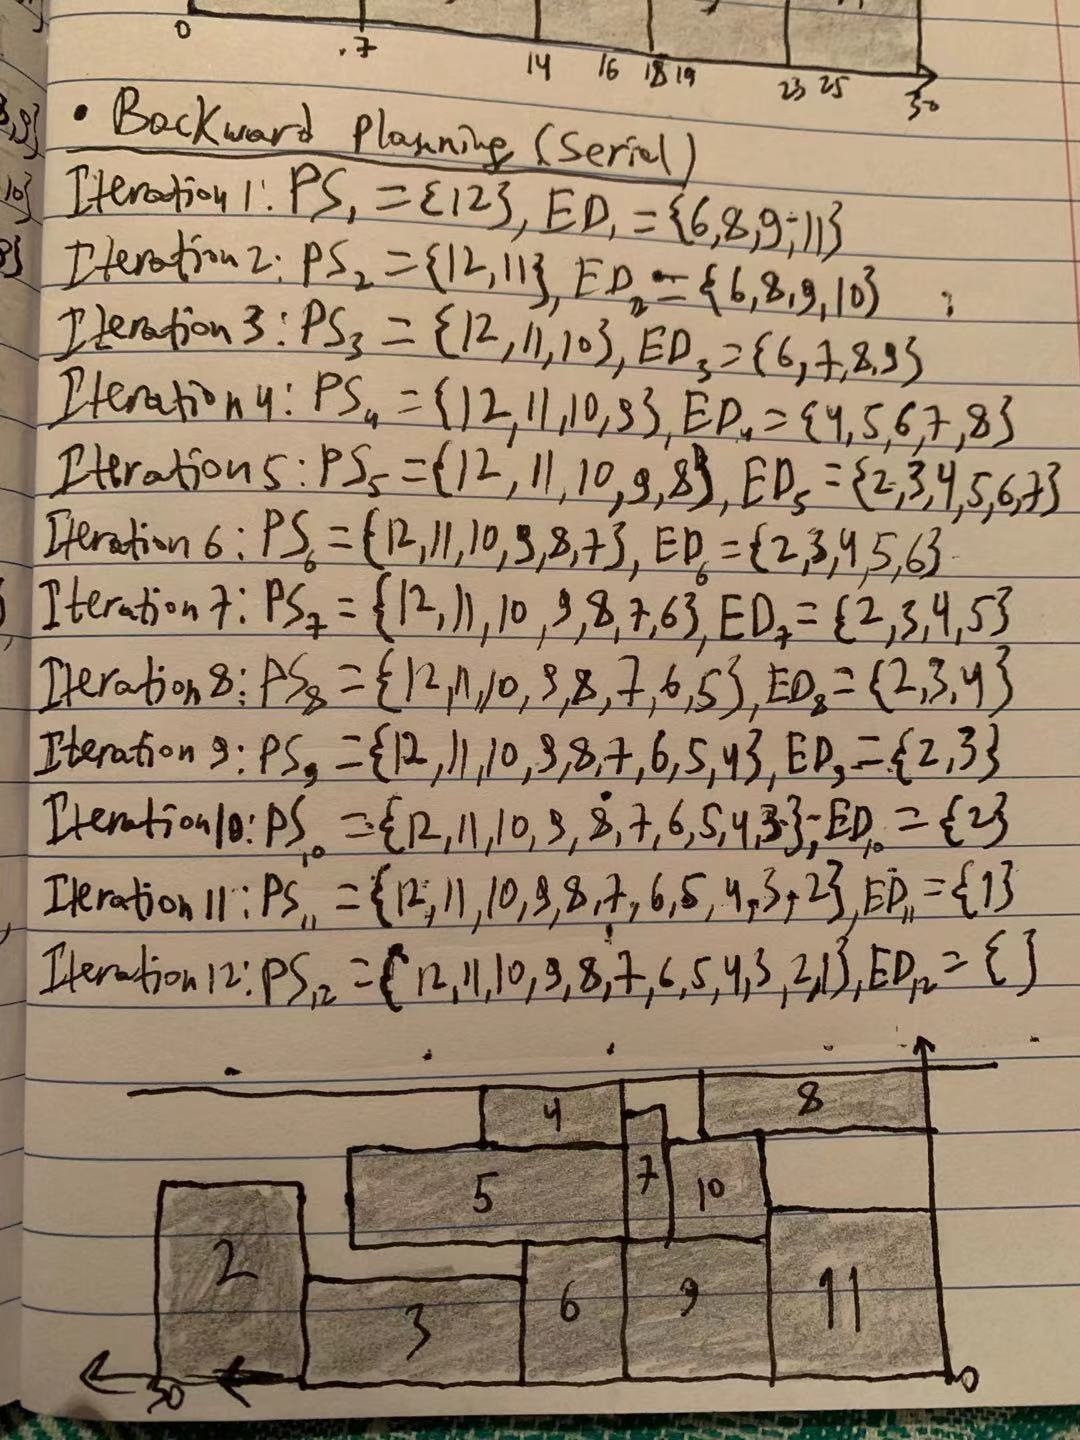 0 .7 14 16 18 19 23 25 30
• Backward Planning (Serial)
8,9}
Iteration 1: PS₁ = {12}, ED₁ = {6,8,9,11}
10}
Iteration 2: PS₂ = {12,11}, ED₂ = {6,8,9,10}
Iteration 3: PS₃ = {12,11,10}, ED₃ = {6,7,8,9}
Iteration 4: PS₄ = {12,11,10,9}, ED₄ = {4,5,6,7,8}
Iteration 5: PS₅ = {12,11,10,9,8}, ED₅ = {2,3,4,5,6,7}
Iteration 6: PS₆ = {12,11,10,9,8,7}, ED₆ = {2,3,4,5,6}
Iteration 7: PS₇ = {12,11,10,9,8,7,6}, ED₇ = {2,3,4,5}
Iteration 8: PS₈ = {12,11,10,9,8,7,6,5}, ED₈ = {2,3,4}
Iteration 9: PS₉ = {12,11,10,9,8,7,6,5,4}, ED₉ = {2,3}
Iteration 10: PS₁₀ = {12,11,10,9,8,7,6,5,4,3}, ED₁₀ = {2}
Iteration 11: PS₁₁ = {12,11,10,9,8,7,6,5,4,3,2}, ED₁₁ = {1}
Iteration 12: PS₁₂ = {12,11,10,9,8,7,6,5,4,3,2,1}, ED₁₂ = { }
4 8
5 7 10
2 3 6 9 11
30 0